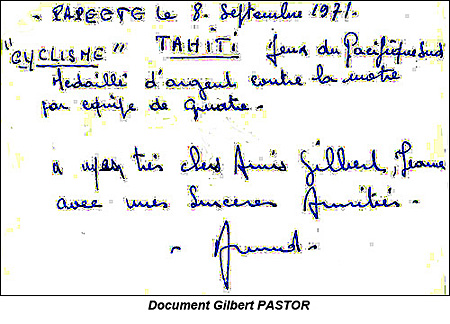 - PAPEETE le 8. Septembre 1971.
"CYCLISME" TAHITI Jeux du Pacifique Sud
Medaille d'argent contre la montre
par equipe de Quatre -
a mes très chers Amis Gilbert, Jeanne
avec mes Sinceres Amitiés -
Document Gilbert PASTOR